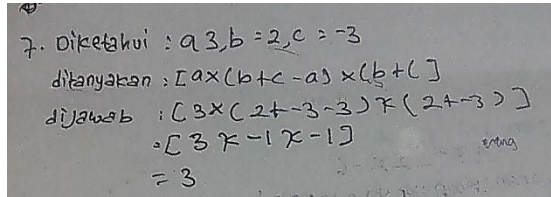 7. Diketahui : a 3, b = 2, c = -3
ditanyakan : [a×(b+c-a) × (b+c]
dijawab : [3×(2+-3-3)×(2+-3)]
=[3×-1×-1]
= 3